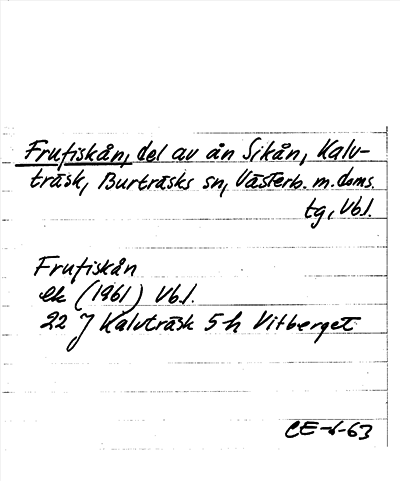 Frufiskån, del av ån Sikån, Kalv-
träsk, Burträsks sn, Västerb. m. doms.
tg, Vbl.
Frufiskån
ek (1961) Vbl.
22 J Kalvträsk 5 h Vitberget
CE-d-63